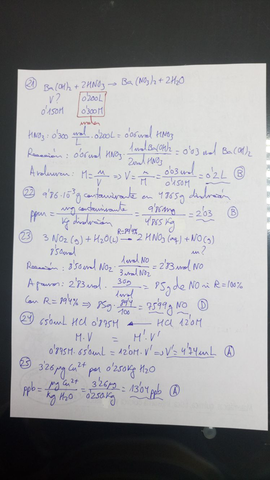 21 Ba(OH)₂ + 2HNO₃ → Ba(NO₃)₂ + 2H₂O
V? 0'200L
0'150M 0'300M
moles
HNO₃: 0'300 mol/L · 0'200L = 0'06 mol HNO₃
Reacción: 0'06 mol HNO₃ · 1mol Ba(OH)₂/2mol HNO₃ = 0'03 mol Ba(OH)₂
A volumen: M = n/V ⇒ V = n/M = 0'03 mol/0'150M = 0'2L B
22 9'86·10⁻³g contaminante en 4'865g disolución
ppm = mg contaminante/Kg disolución = 9'86mg/4'865 Kg = 2'03 B
23 3 NO₂(g) + H₂O(l) → R=89'4% 2 HNO₃(aq) + NO(g)
8'50mol m?
Reacción: 8'50mol NO₂ · 1mol NO/3mol NO₂ = 2'83mol NO
A gramos: 2'83 mol · 30g/1mol = 85g de NO si R=100%
Con R=89'4% ⇒ 85g · 89'4/100 = 75'99g NO D
24 65'0mL HCl 0'875M ← HCl 12'0M
M·V = M'·V'
0'875M·65'0mL = 12'0M·V' ⇒ V' = 4'74mL A
25 3'26µg Ca²⁺ por 0'250Kg H₂O
ppb = µg Ca²⁺/Kg H₂O = 3'26µg/0'250Kg = 13'04 ppb A